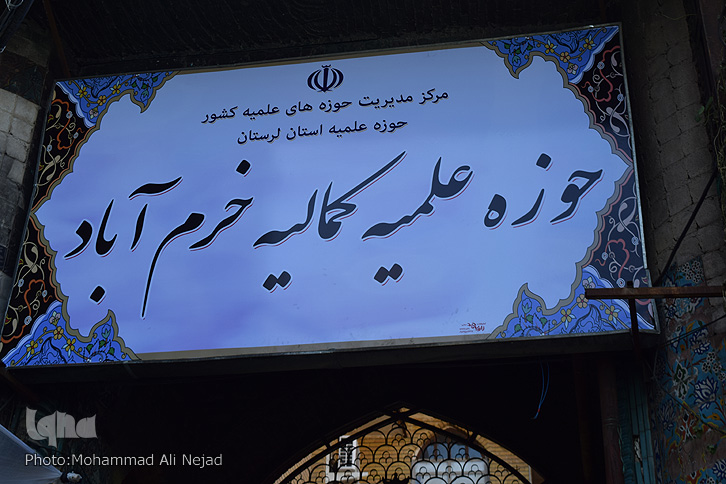 مرکز مدیریت حوزه های علمیه کشور
حوزه علمیه استان لرستان
حوزه علمیه کمالیه خرم آباد
iqna
Photo:Mohammad Ali Nejad